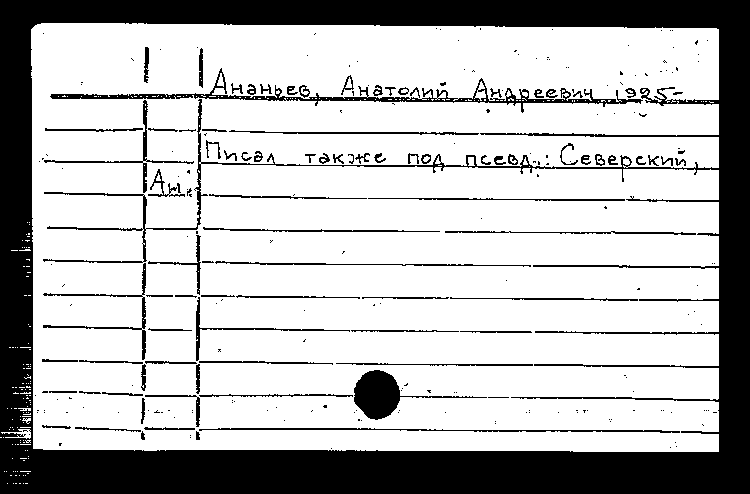 Ананьев, Анатолий Андреевич, 1925-
Писал также под псевд.: Северский,
Ан.